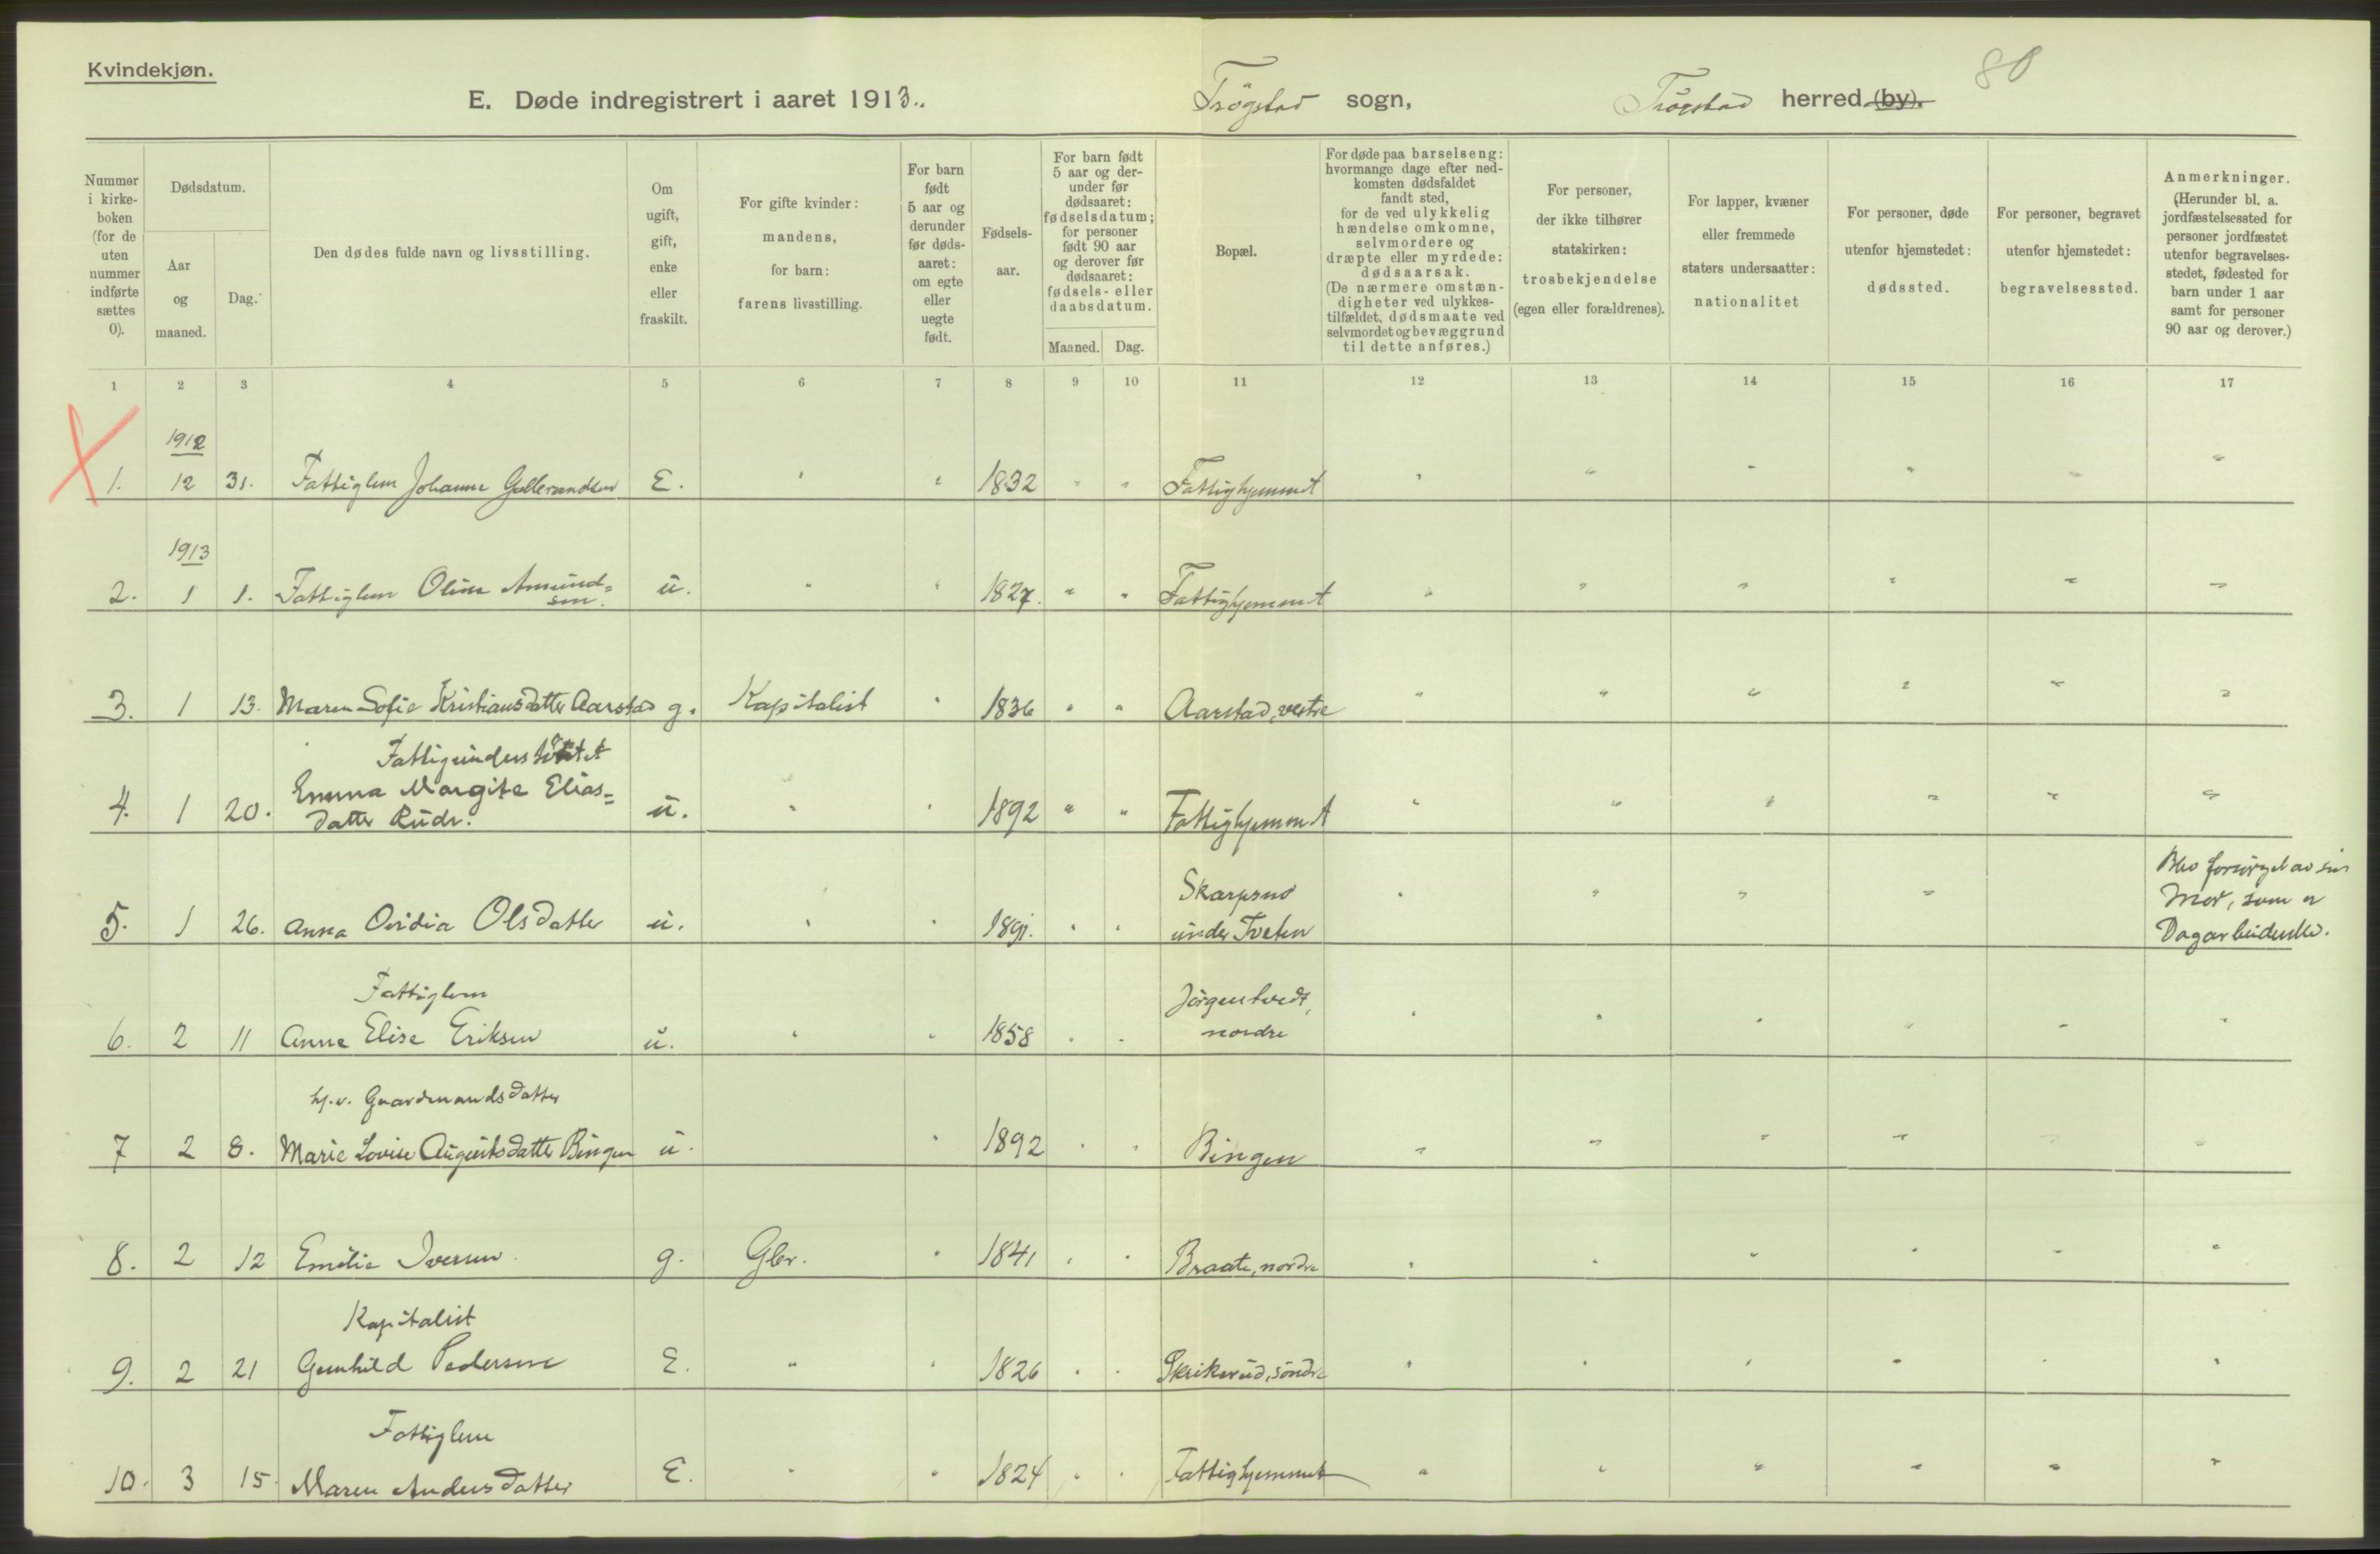 Kvindekjøn.
80
E. Døde indregistrert i aaret 1913. Trögstad sogn, Trögstad herred (by).
Nummer i kirkeboken (for de uten nummer indførte sættes 0).
Dødsdatum.
Aar og maaned.
Dag.
Den dødes fulde navn og livsstilling.
Om ugift, gift, enke eller fraskilt.
For gifte kvinder: mandens, for barn: farens livsstilling.
For barn født 5 aar og derunder før dødsaaret: om egte eller uegte født.
Fødselsaar.
For barn født 5 aar og derunder før dødsaaret: fødselsdatum; for personer født 90 aar og derover før dødsaaret: fødsels- eller daabsdatum.
Maaned. Dag.
Bopæl.
For døde paa barselseng: hvormange dage efter nedkomsten dødsfaldet fandt sted, for de ved ulykkelig hændelse omkomne, selvmordere og dræpte eller myrdede: dødsaarsak. (De nærmere omstændigheter ved ulykkestilfældet, dødsmaate ved selvmordet og bevæggrund til dette anføres.)
For personer, der ikke tilhører statskirken: trosbekjendelse (egen eller forældrenes).
For lapper, kvæner eller fremmede staters undersaatter: nationalitet
For personer, døde utenfor hjemstedet: dødssted.
For personer, begravet utenfor hjemstedet: begravelsessted.
Anmerkninger. (Herunder bl. a. jordfæstelsessted for personer jordfæstet utenfor begravelsesstedet, fødested for barn under 1 aar samt for personer 90 aar og derover.)
1 2 3 4 5 6 7 8 9 10 11 12 13 14 15 16 17
1912
1. 12 31. Fattiglem Johanne E. " " 1832 " " Fattighjemmet " " " " " "
1913
2. 1 1. Fattiglem Oline Amund=
sen. u. " " 1827. " " Fattighjemmet " " " " " "
3. 1 13. Maren Sofie Kristiansdatter Aarstad g. Kapitalist " 1836 " " Aarstad, vestre " " " " " "
Fattigunderstöttet
Emma Margite Elias=
4. 1 20. datter Rud. u. " " 1892 " " Fattighjemmet " " " " " "
Skarpsno Blev forsörget av sin
Mor, som er
5. 1 26. Anna Ovidia Olsdatter u. " " 1891. " " under Tveten " " " " Dagarbeiderske.
Fattiglem Jörgentvedt,
6. 2 11 Anne Elise Eriksen u. " " 1858 " " nordre " " " " " "
hj.v. Gaardmandsdatter
7 2 8. Marie Lovise Augustsdatter Bingen u. " 1892 " " Bingen " " " " " "
8. 2 12 Emilie Iversen. g. Gbr. " 1841 " " Braate, nordre " " " " " "
Kapitalist
9. 2 21 Gunhild Pedersen E. " " 1826 " " Skrikerud, söndre " " " " " "
Fattiglem
10. 3 15. Maren Andersdatter E. " " 1824 " " Fattighjemmet " " " " " "